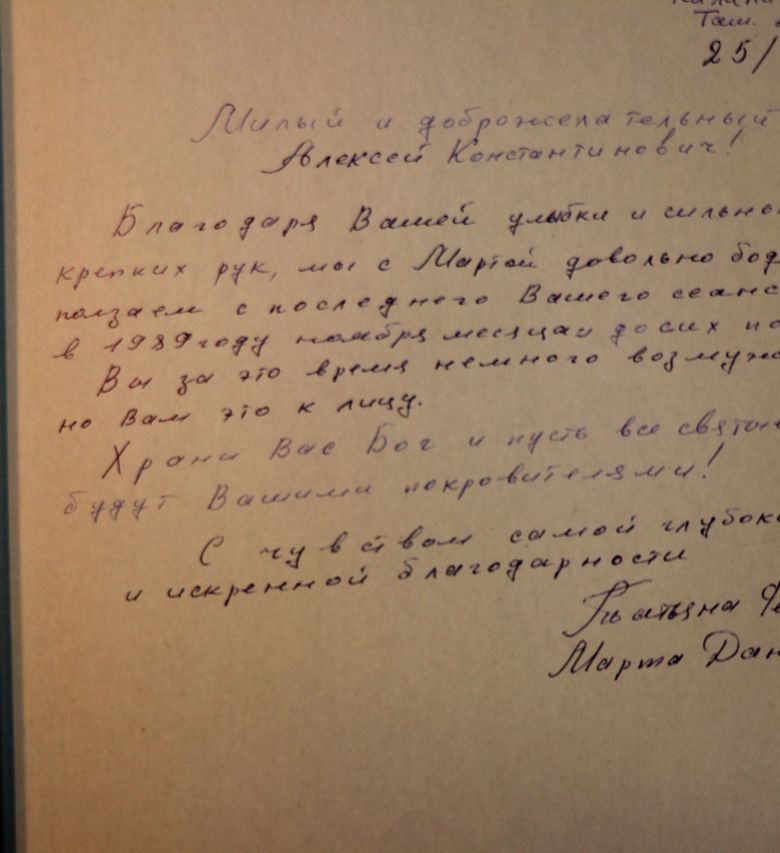 Таш.
25/
Милый и доброжелательный
Алексей Константинович!
Благодаря Вашей улыбки и сильно
крепких рук, мы с Мартой довольно бод
ползаем с последнего Вашего сеанс
в 1989 году ноября месяцаи до сих по
Вы за это время немного возмуж
но Вам это к лицу.
Храни Вас Бог и пусть все святые
будут Вашими покровителями!
С чувством самой глубоко
и искренной благодарности
Татьяна
Марта Дан